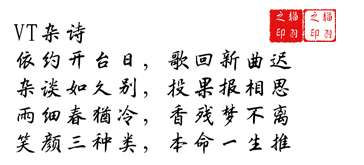 VT杂诗
依约开台日，歌回新曲迟
杂谈如久别，投果报相思
雨细春犹冷，香残梦不离
笑颜三种类，本命一生推
猫羽之印
猫羽之印